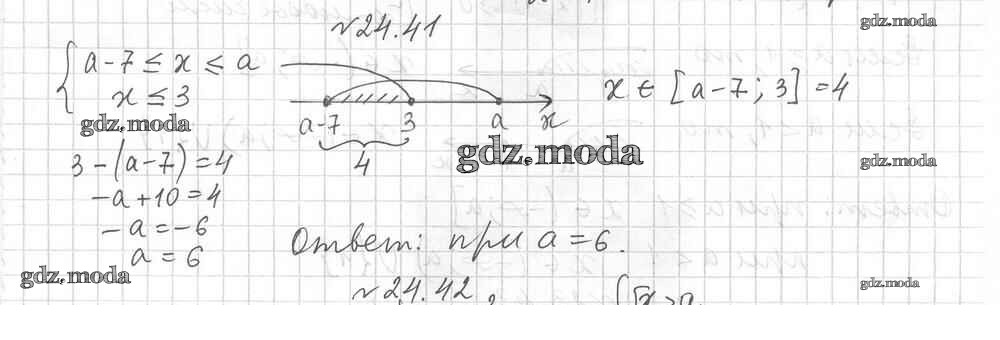 №24.41
gdz.moda
{ a-7 ≤ x ≤ a
x ≤ 3
a-7 3 a x
4
x ∈ [a-7; 3] = 4
gdz.moda
gdz.moda
gdz.moda
3-(a-7)=4
-a+10=4
-a=-6
a=6
Ответ: при a=6.
gdz.moda
gdz.moda
№24.42